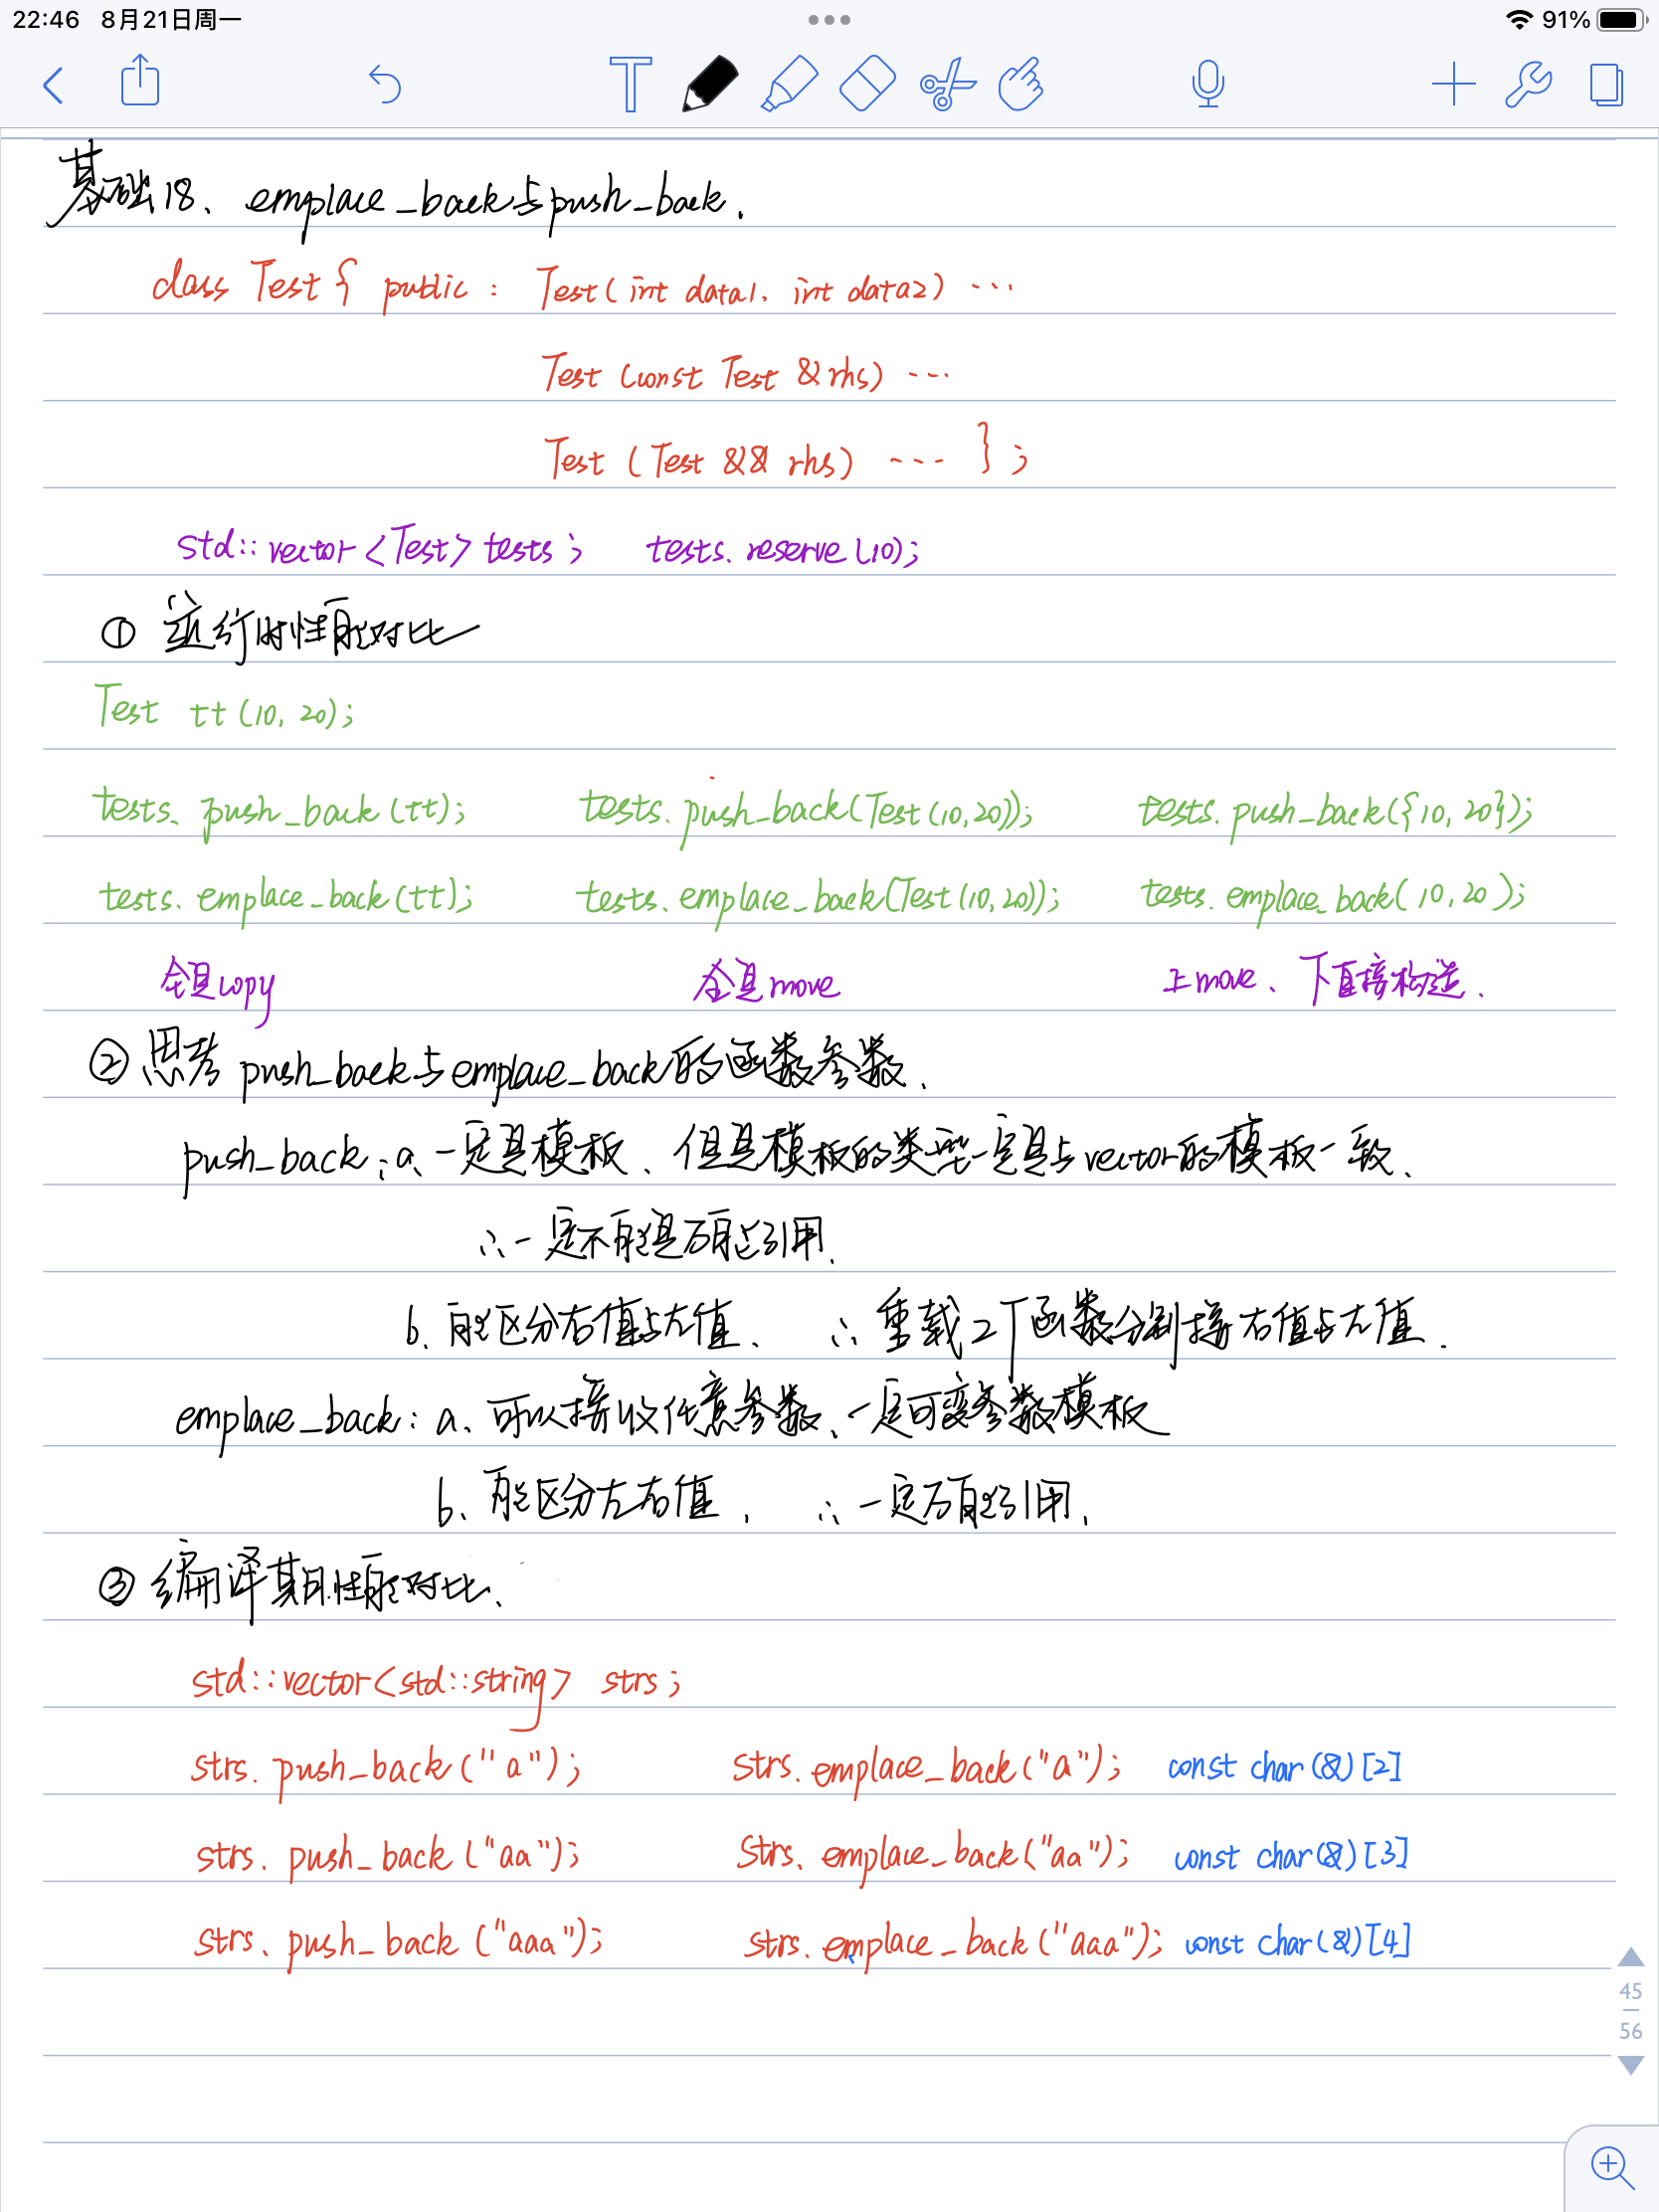 22:46 8月21日周一 91%
基础18、emplace_back与push_back.
class Test { public : Test(int data1, int data2) ...
Test (const Test &rhs) ...
Test (Test && rhs) ... } ;
std::vector<Test> tests ; tests.reserve(10);
① 运行时性能对比
Test tt (10, 20);
tests. push_back (tt); tests. push_back(Test(10,20)); tests. push_back({10, 20});
tests. emplace_back (tt); tests. emplace_back(Test(10,20)); tests. emplace_back( 10, 20 );
全是copy 全是move 上move、下直接构造.
② 思考 push_back与emplace_back的函数参数.
push_back : a、一定是模板、但是模板的类型一定是与vector的模板一致、
∴一定不能是万能引用.
b、能区分右值与左值、 ∴重载2个函数分别接右值与左值.
emplace_back : a、可以接收任意参数、一定可变参数模板
b、能区分左右值. ∴一定万能引用.
③ 编译期性能对比、
std::vector<std::string> strs ;
strs. push_back ("a"); strs. emplace_back ("a"); const char (&) [2]
strs. push_back ("aa"); strs. emplace_back ("aa"); const char (&) [3]
strs. push_back ("aaa"); strs. emplace_back ("aaa"); const char (&) [4]
45
56